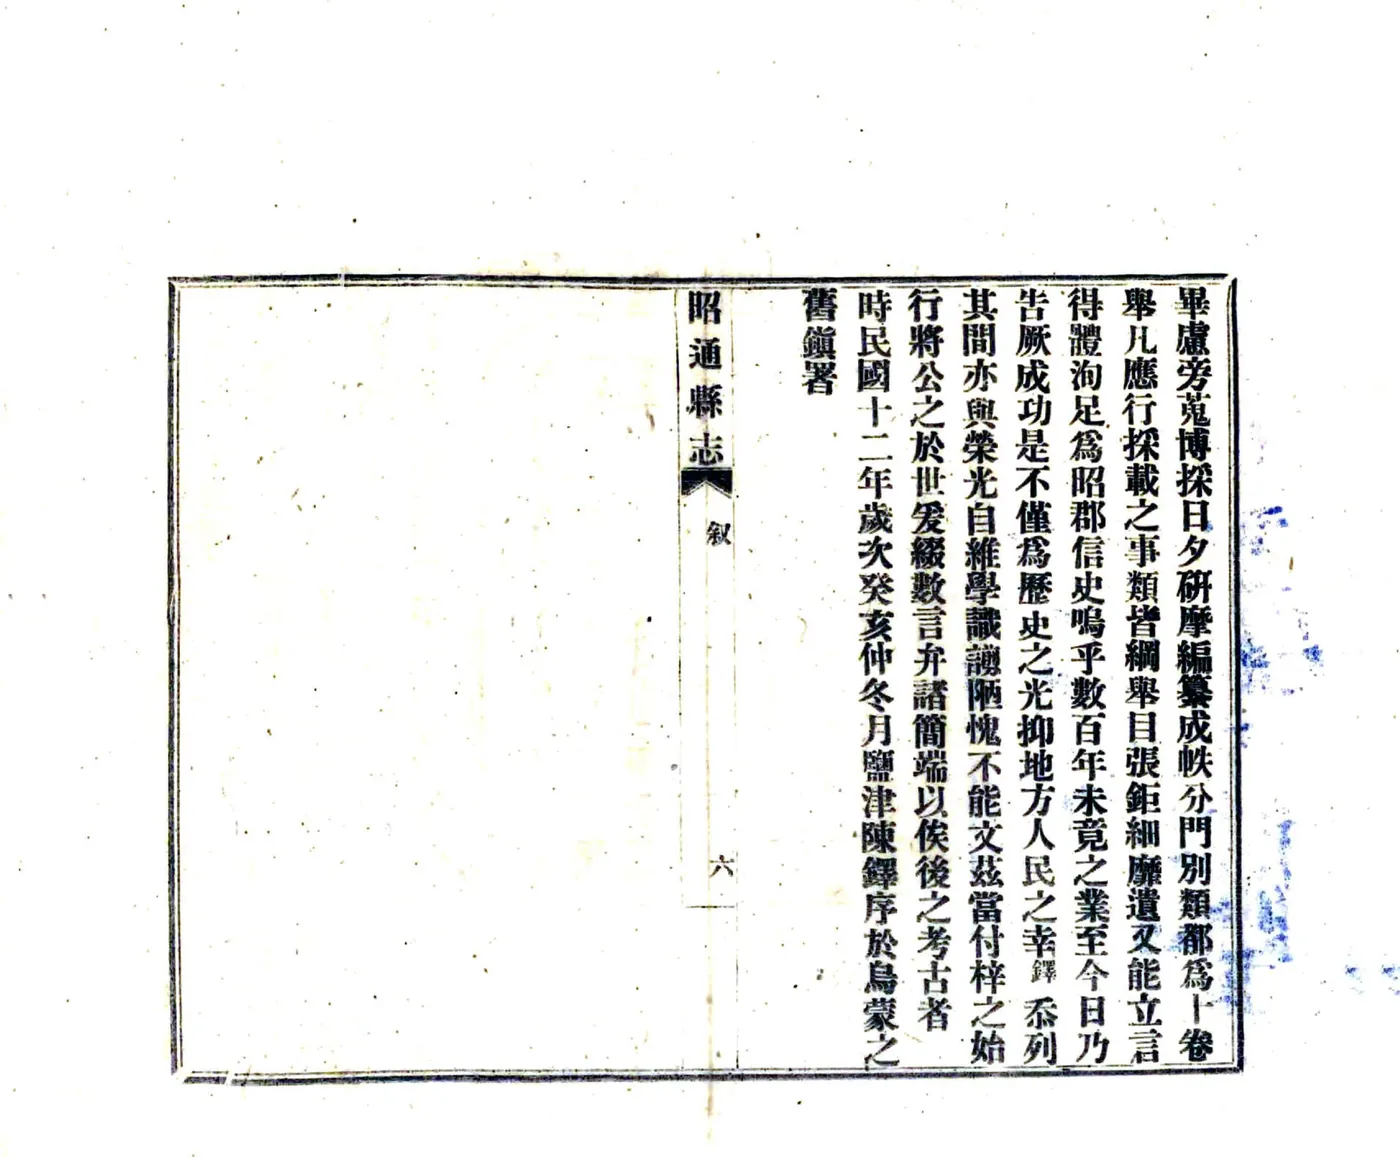 畢慮旁蒐博採日夕研摩編纂成帙分門別類都爲十卷
舉凡應行採載之事類皆綱舉目張鉅細靡遺又能立言
得體洵足爲昭郡信史嗚乎數百年未竟之業至今日乃
告厥成功是不僅爲歷史之光抑地方人民之幸鐸忝列
其間亦與榮光自維學識譾陋愧不能文茲當付梓之始
行將公之於世爰綴數言弁諸簡端以俟後之考古者
時民國十二年歲次癸亥仲冬月鹽津陳鐸序於烏蒙之
舊鎭署
昭通縣志
叙
六